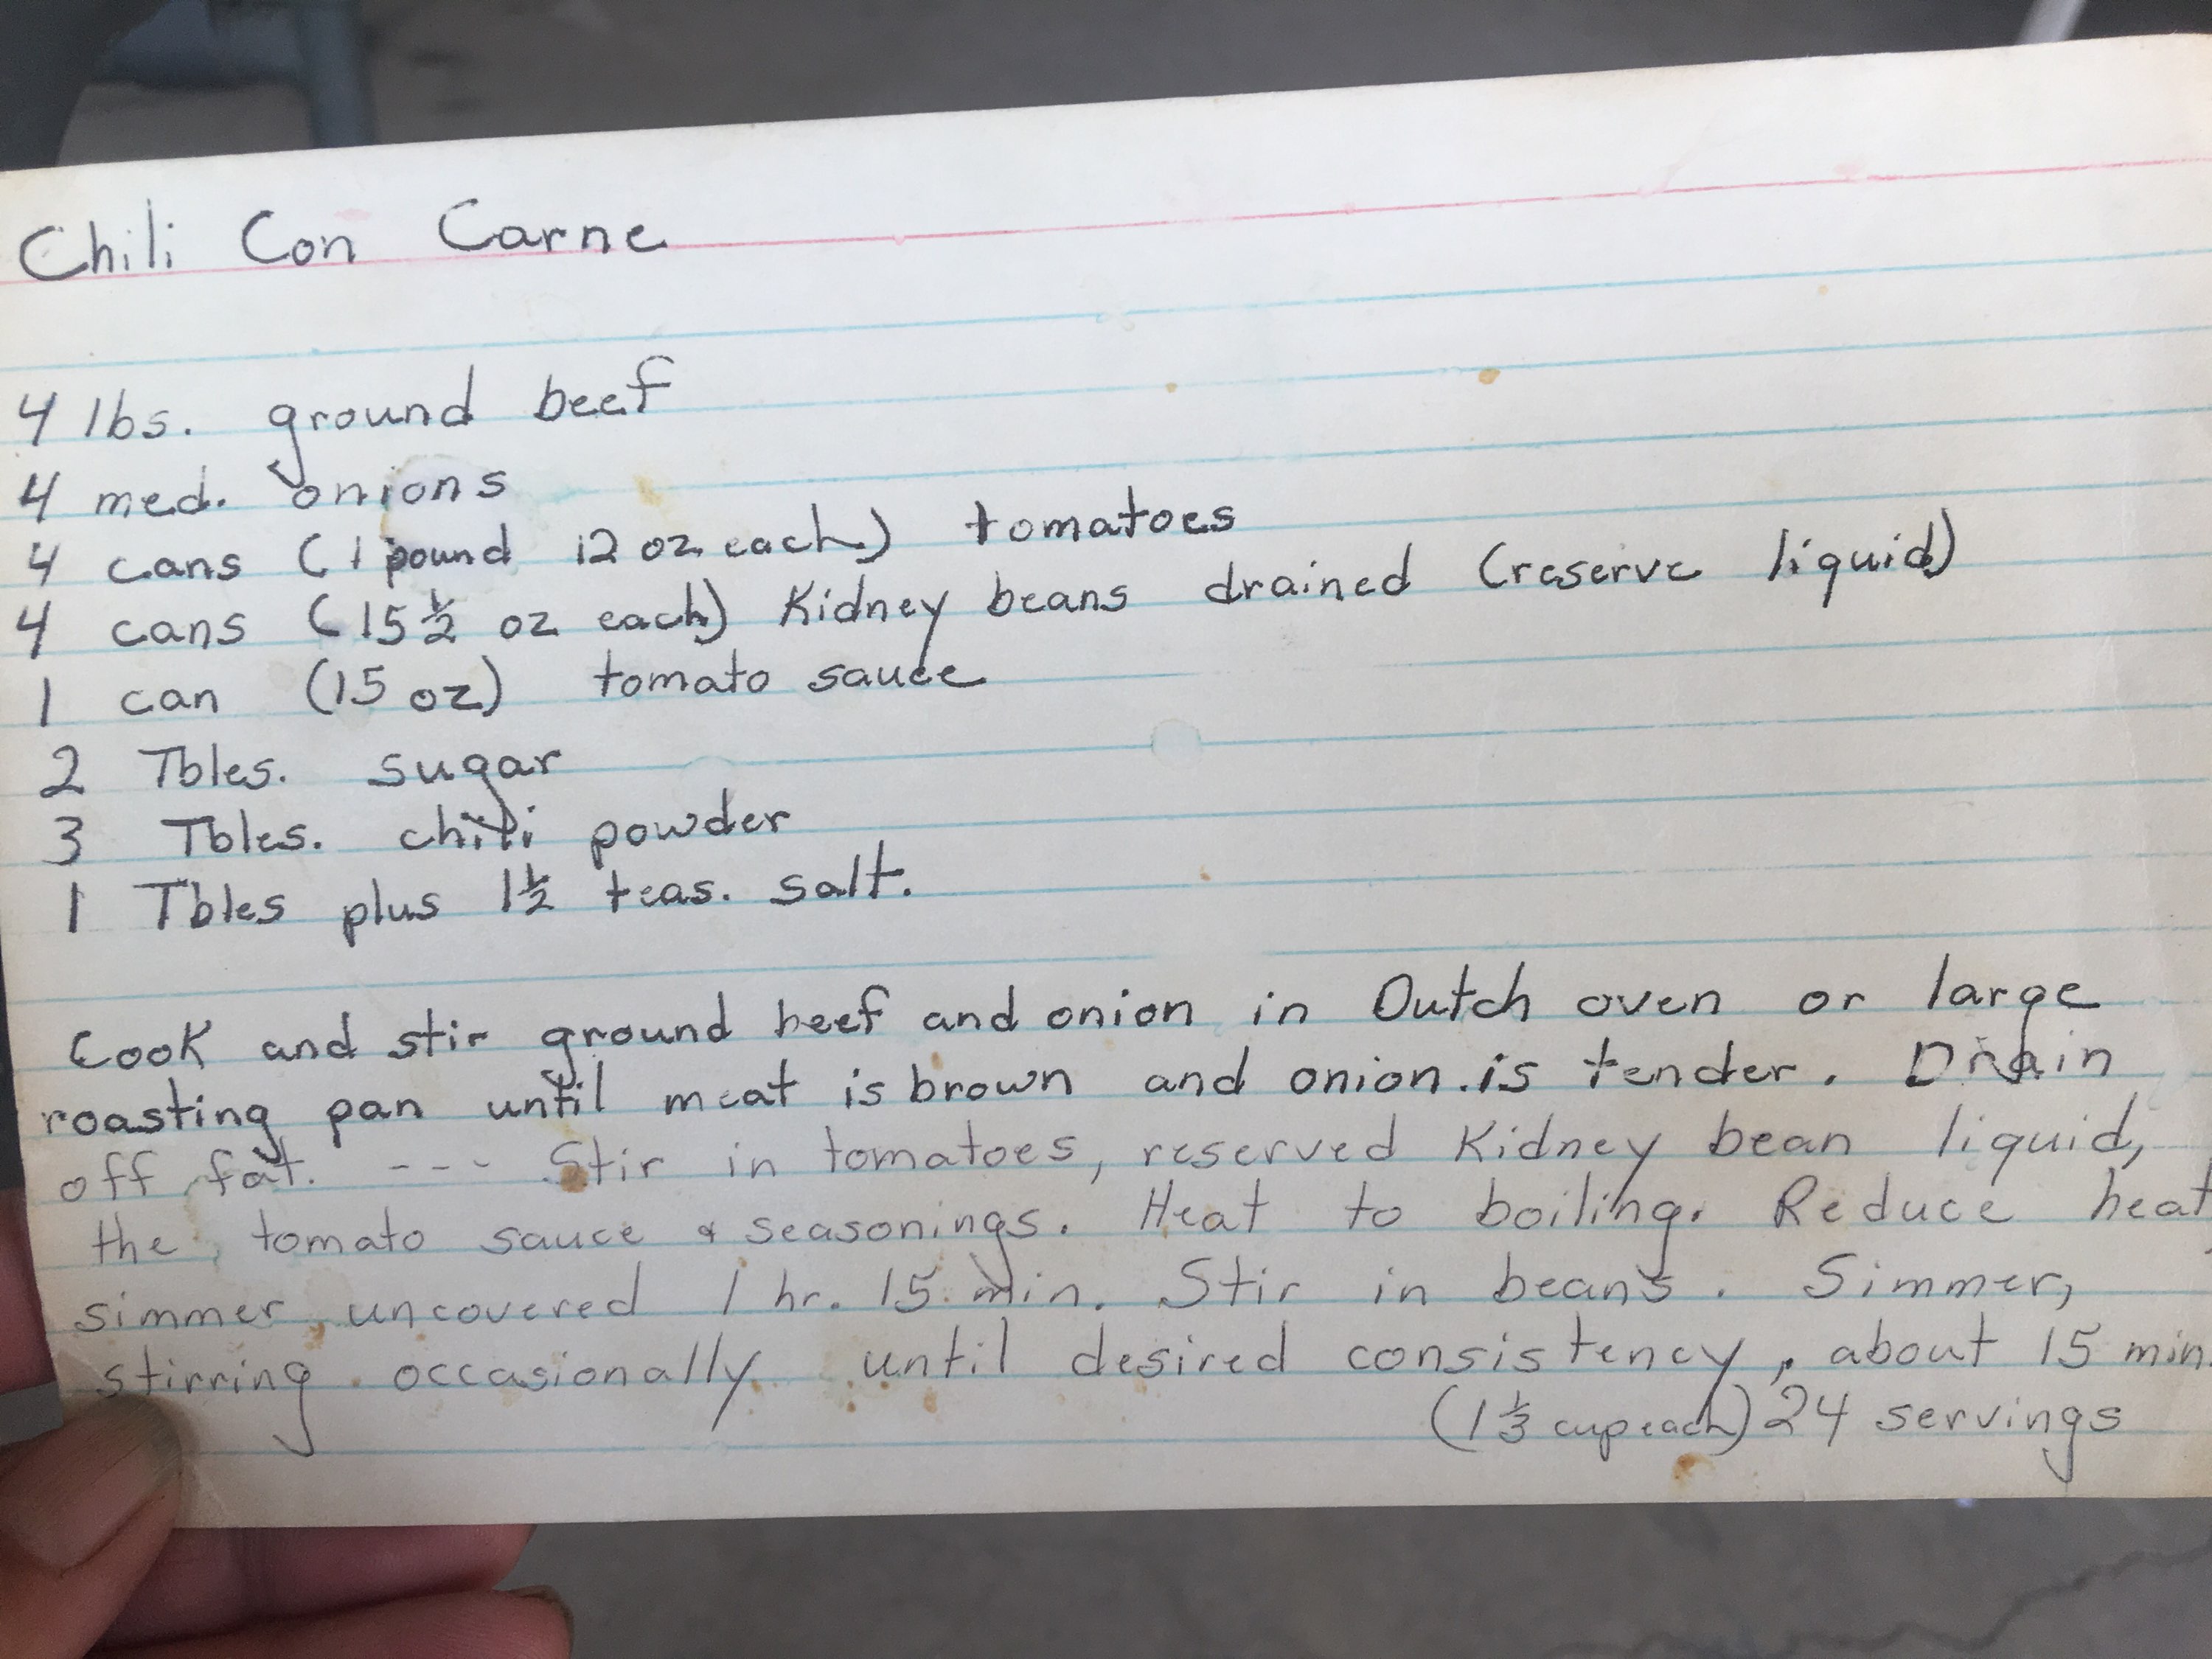 Chili Con Carne
4 lbs. ground beef
4 med. onions
4 cans (1 pound 12 oz. each) tomatoes
4 cans (15½ oz each) Kidney beans drained (reserve liquid)
1 can (15 oz) tomato sauce
2 Tbles. sugar
3 Tbles. chili powder
1 Tbles plus 1½ teas. salt.
Cook and stir ground beef and onion in Dutch oven or large
roasting pan until meat is brown and onion is tender. Drain
off fat. --- Stir in tomatoes, reserved Kidney bean liquid,
the tomato sauce & seasonings. Heat to boiling. Reduce heat,
simmer uncovered 1 hr. 15 min. Stir in beans. Simmer,
stirring occasionally until desired consistency, about 15 min.
(1⅓ cup each) 24 servings